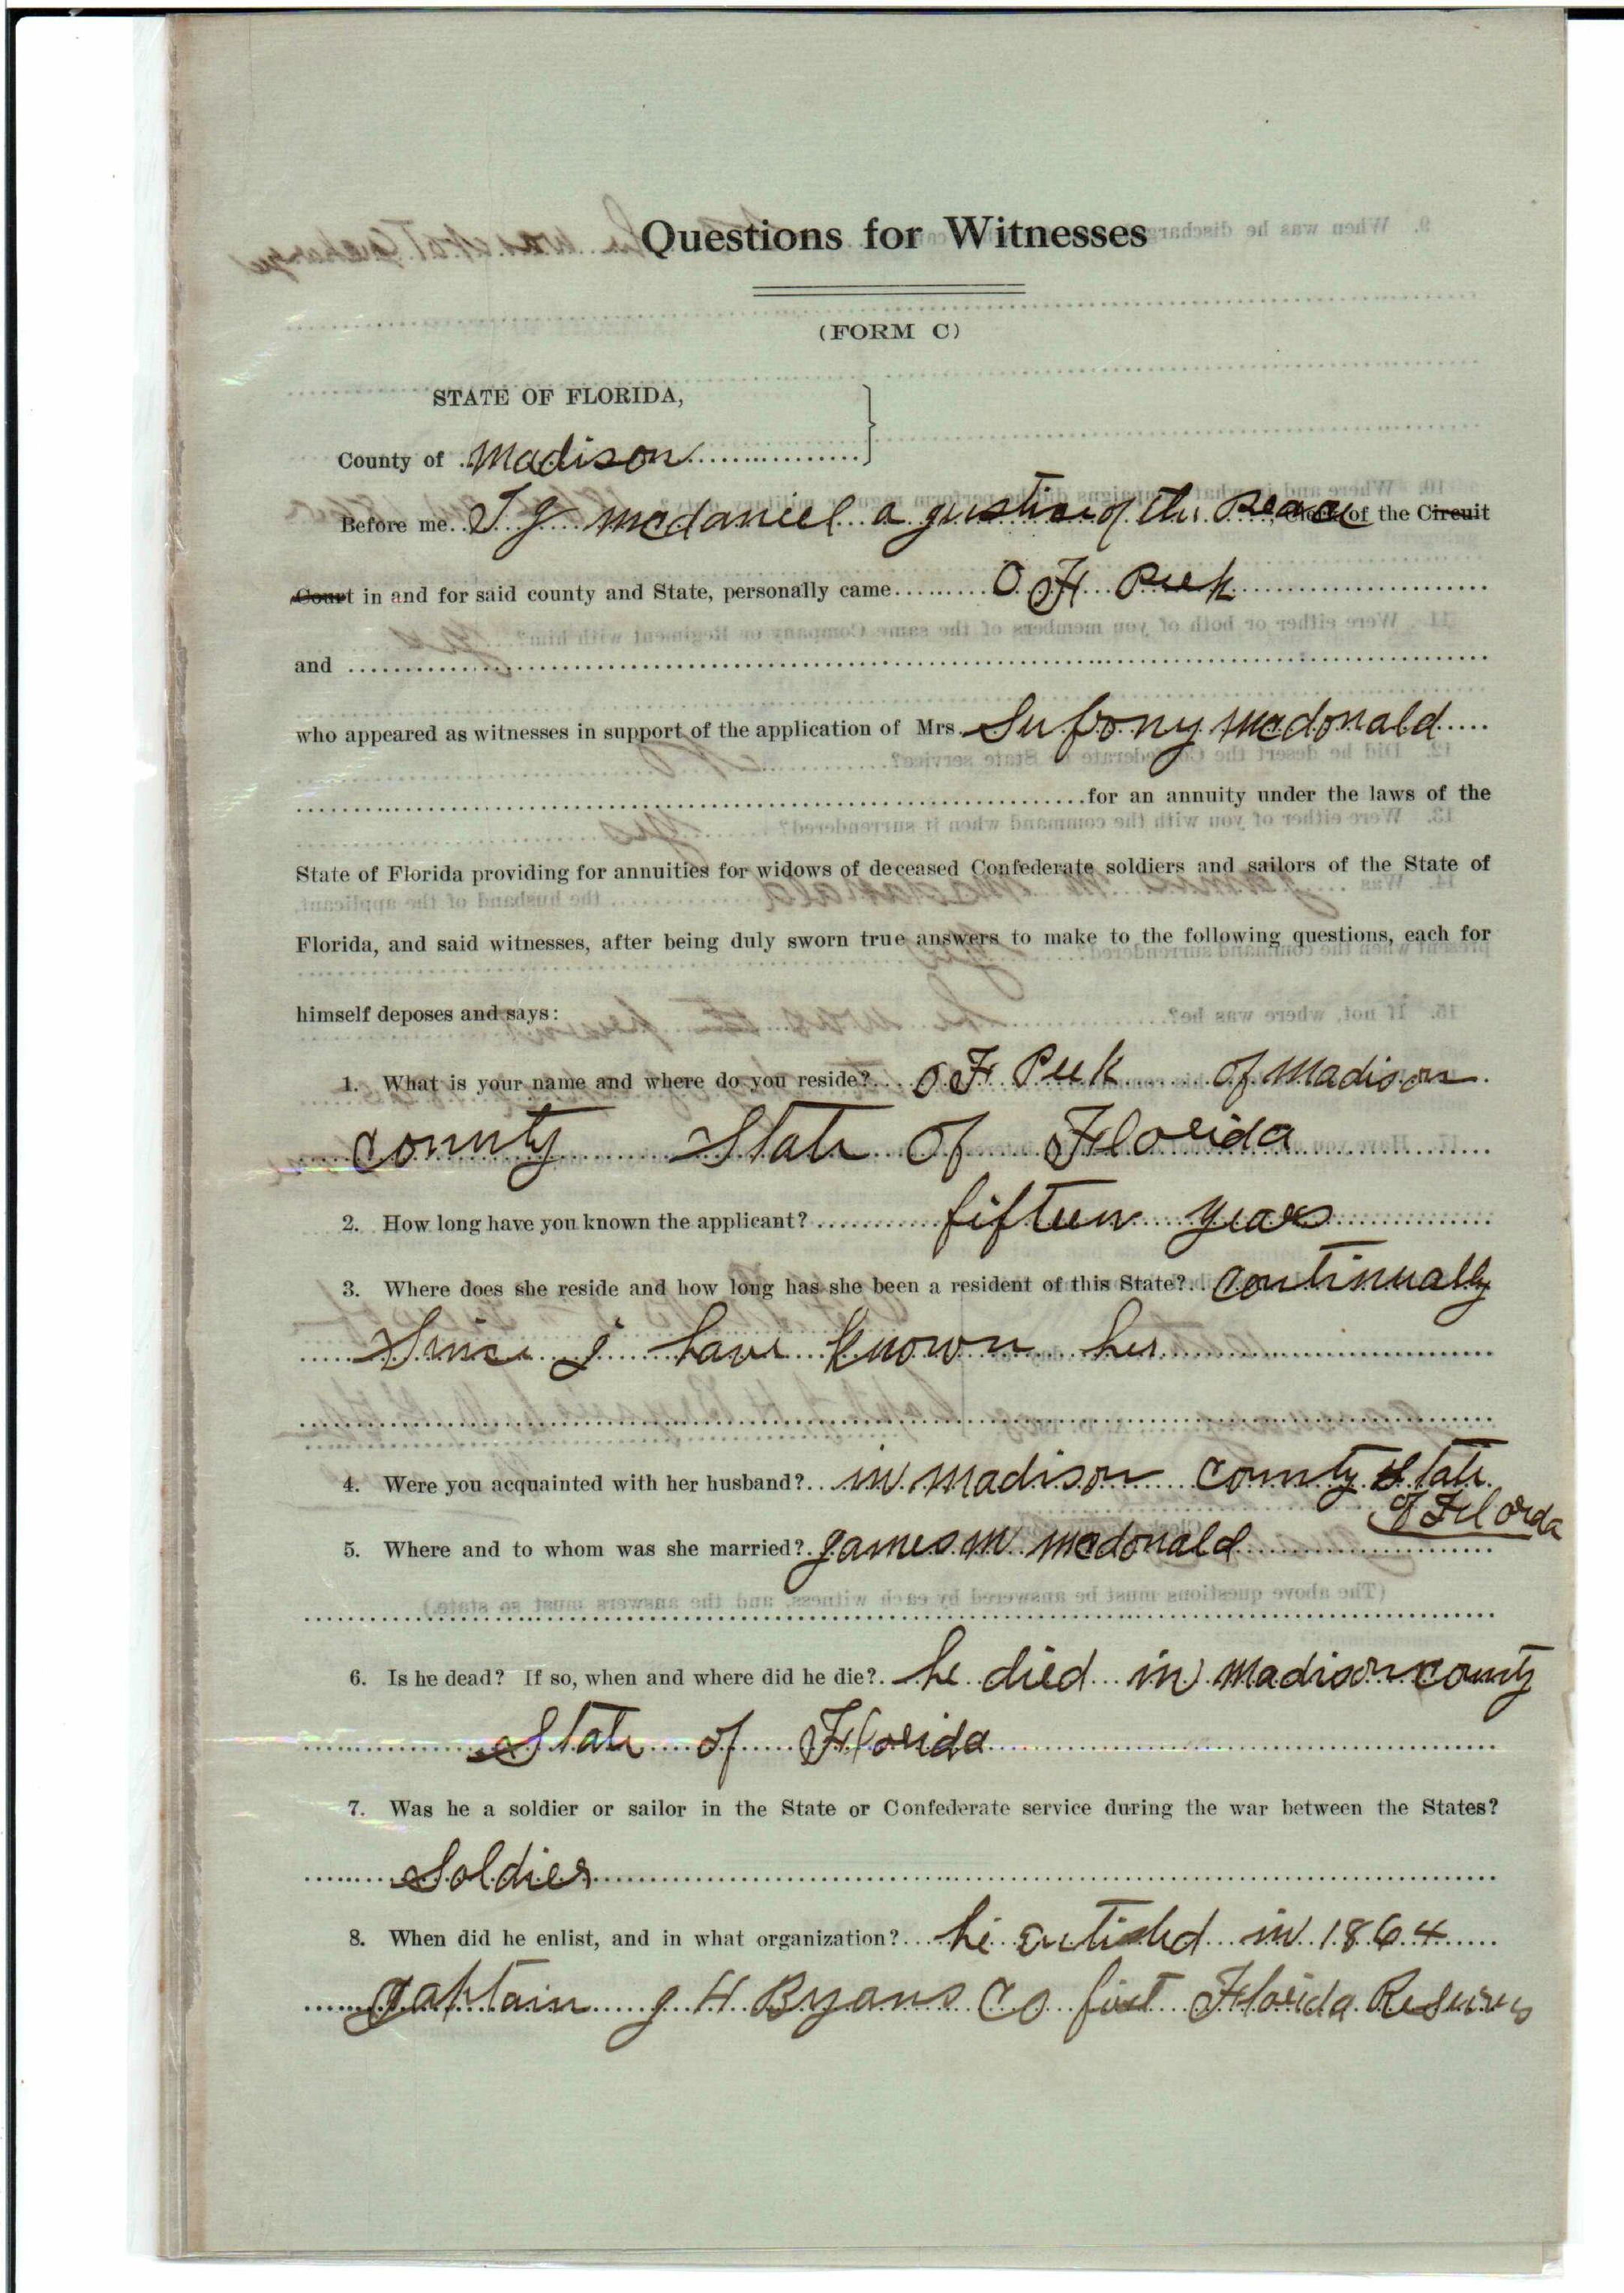 Questions for Witnesses
(FORM C)
STATE OF FLORIDA,
County of Madison
Before me T J mcdaniel a justice of the Peace, Clerk of the Circuit
Court in and for said county and State, personally came O F Peek
and
who appeared as witnesses in support of the application of Mrs. Sufrony mcdonald
for an annuity under the laws of the
State of Florida providing for annuities for widows of deceased Confederate soldiers and sailors of the State of
Florida, and said witnesses, after being duly sworn true answers to make to the following questions, each for
himself deposes and says:
1. What is your name and where do you reside? O F Peek of Madison
county State of Florida
2. How long have you known the applicant? fifteen years
3. Where does she reside and how long has she been a resident of this State? continually
Since I have known her
4. Were you acquainted with her husband? in Madison county State
of Florda
5. Where and to whom was she married? James M mcdonald
6. Is he dead? If so, when and where did he die? he died in Madison county
State of Florida
7. Was he a soldier or sailor in the State or Confederate service during the war between the States?
Soldier
8. When did he enlist, and in what organization? he in 1864
Captain J H Byans Co first Florida Reserves